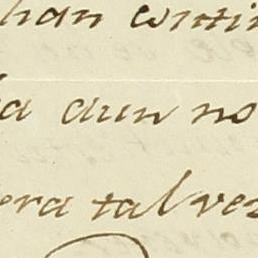 han contin
a aun no
era tal vez